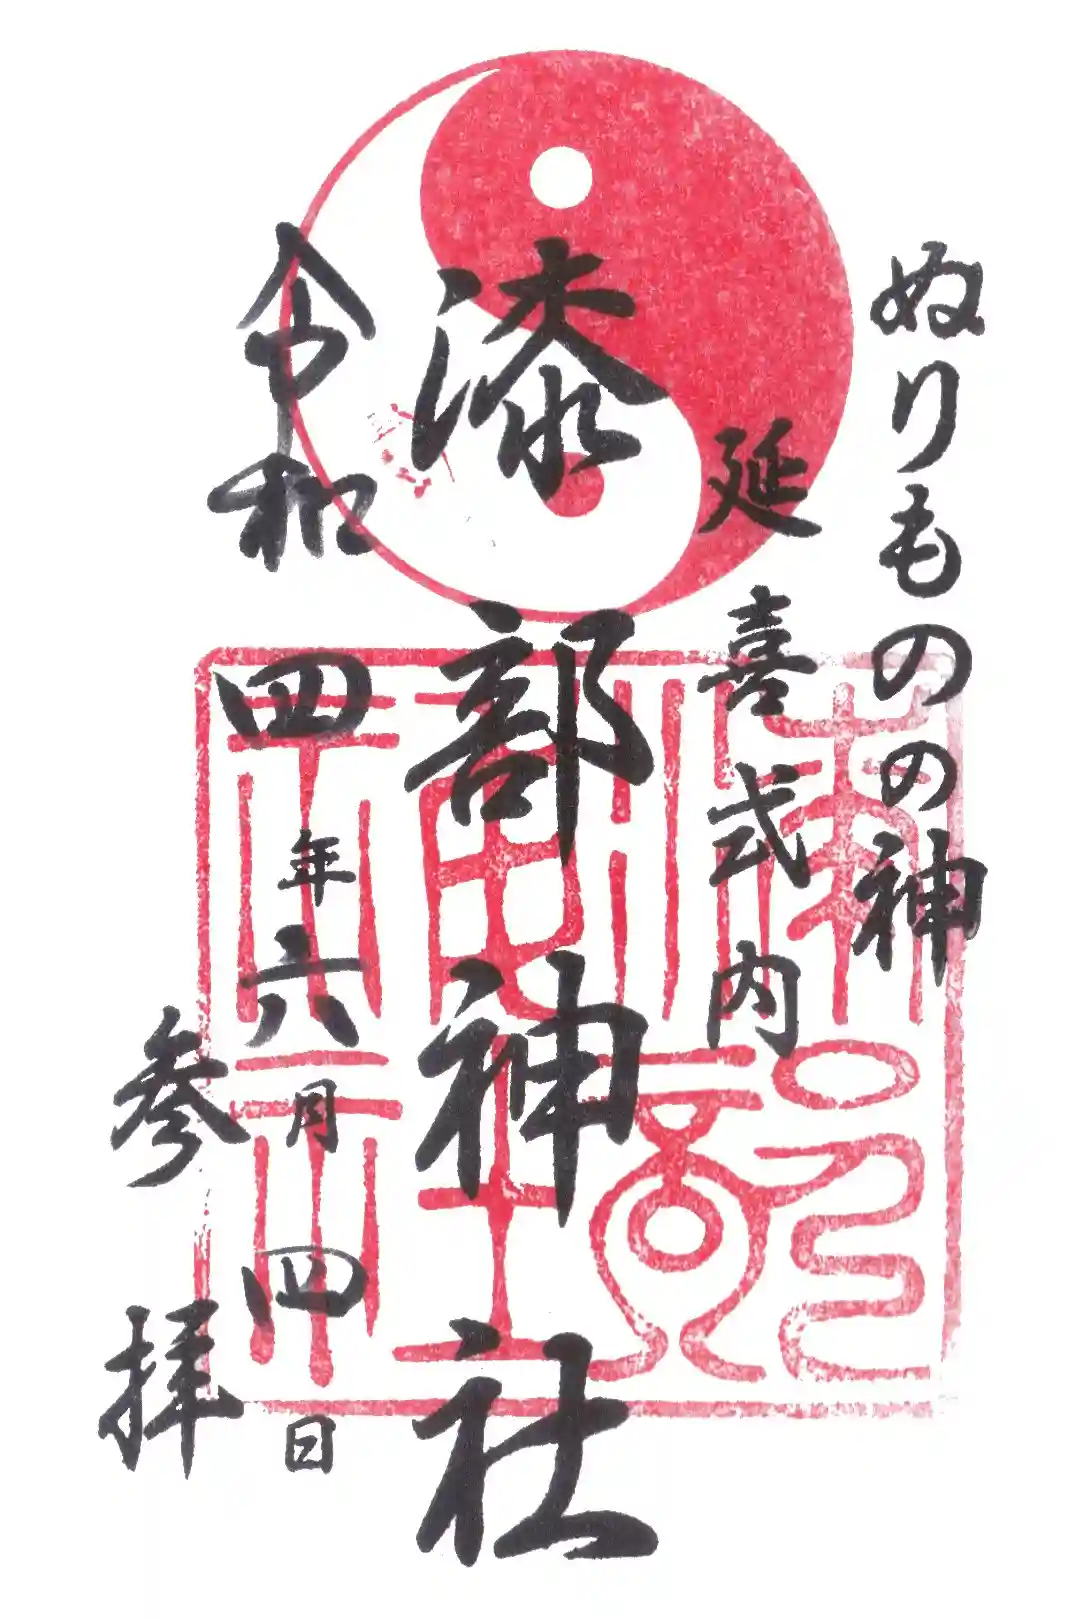 ぬりものの神
延喜式内
漆部神社
令和四年六月四日
参拝